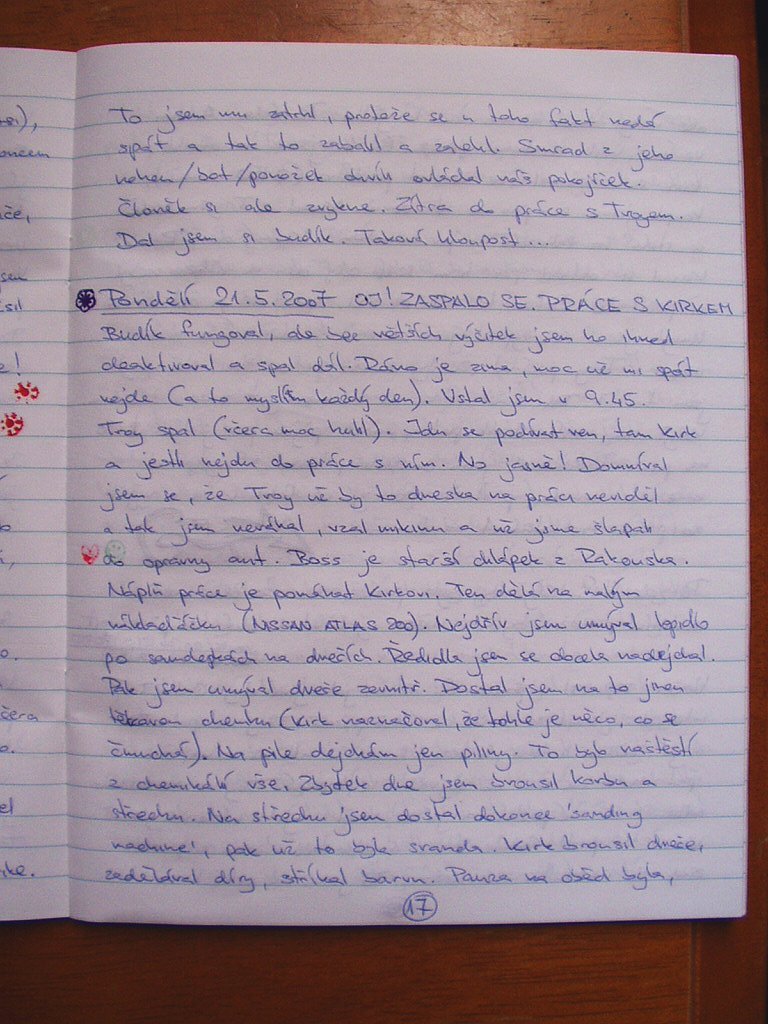 To jsem mu zatrhl, protože se u toho fakt nedá
spát a tak to zabalil a zalehl. Smrad z jeho
nohou/bot/ponožek chvíli ovládal náš pokojíček.
Člověk si ale zvykne. Zítra do práce s Troyem.
Dal jsem si budík. Taková hloupost...
Pondělí 21.5.2007 OJ! ZASPALO SE. PRÁCE S KIRKEM
Budík fungoval, ale bez větších výčitek jsem ho ihned
deaktivoval a spal dál. Ráno je zima, moc už mi spát
nejde (a to myslím každý den). Vstal jsem v 9.45.
Troy spal (včera moc hulil). Jdu se podívat ven, tam Kirk
a jestli nejdu do práce s ním. No jasně! Domníval
jsem se, že Troy už by to dneska na práci neviděl
a tak jsem neváhal, vzal mikinu a už jsme šlapali
do opravny aut. Boss je starší chlápek z Rakouska.
Náplň práce je pomáhat Kirkovi. Ten dělá na malým
náklaďáčku (NISSAN ATLAS 200). Nejdřív jsem umýval lepidlo
po samolepkách na dveřích. Ředidla jsem se obcela nadejchal.
Pak jsem umýval dveře zevnitř. Dostal jsem na to jinou
chemku (Kirk naznačoval, že tohle je něco, co se
čmuchá). Na pile dejchám jen piliny. To bylo naštěstí
z chemikálií vše. Zbytek dne jsem brousil korbu a
střechu. Na střechu jsem dostal dokonce 'sanding
machine', pak už to byla sranda. Kirk brousil dveře,
zadělával díry, stříkal barvu. Pauza na oběd byla,
17
če,
sil
e!
čera
el
ike.